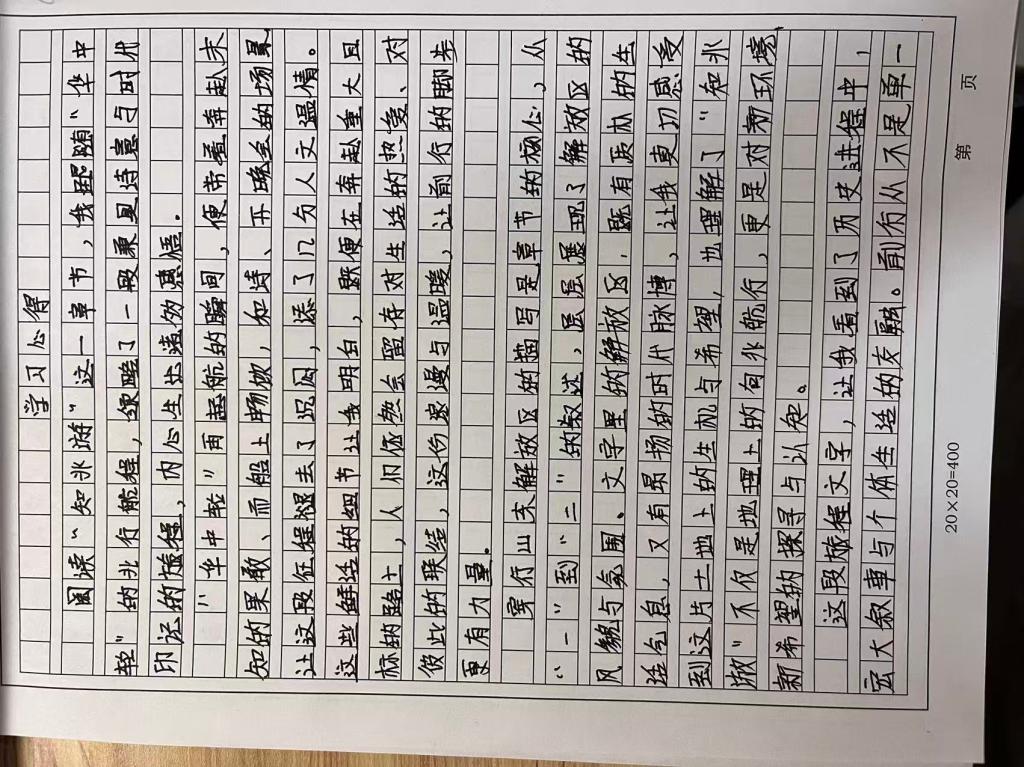 学习心得
阅读“知北游”这一章节，我跟随“华中
轮”的北行航程，领略了一段兼具诗意与时代
印记的旅程，内心生出诸多感悟。
“华中轮”再起航的瞬间，便带着奔赴未
知的果敢、而船上畅饮，和诗、开晚会的场景
让这段征程褪去了沉闷，添了几分人文温情。
这些鲜活的细节让我明白，既便在奔赴重大目
标的路上，人们依然会留存对生活的热爱、对
彼此的联结，这份浪漫与温暖，让前行的脚步
更有力量。
穿行山东解放区的描写是章节的核心，从
“一”到“二”的叙述，层层展现了解放区的
风貌与氛围。文字里的解放区，既有质朴的生
活气息，又有昂扬的时代脉搏，让我更切感受
到这片土地上的生机与希望，也理解了“知北
游”不仅是地理上的向北航行，更是对新环境
新希望的探寻与认知。
这段旅程文字，让我看到了历史进程中，
宏大叙事与个体生活的交融。前行从不是单一
20×20=400
第 页